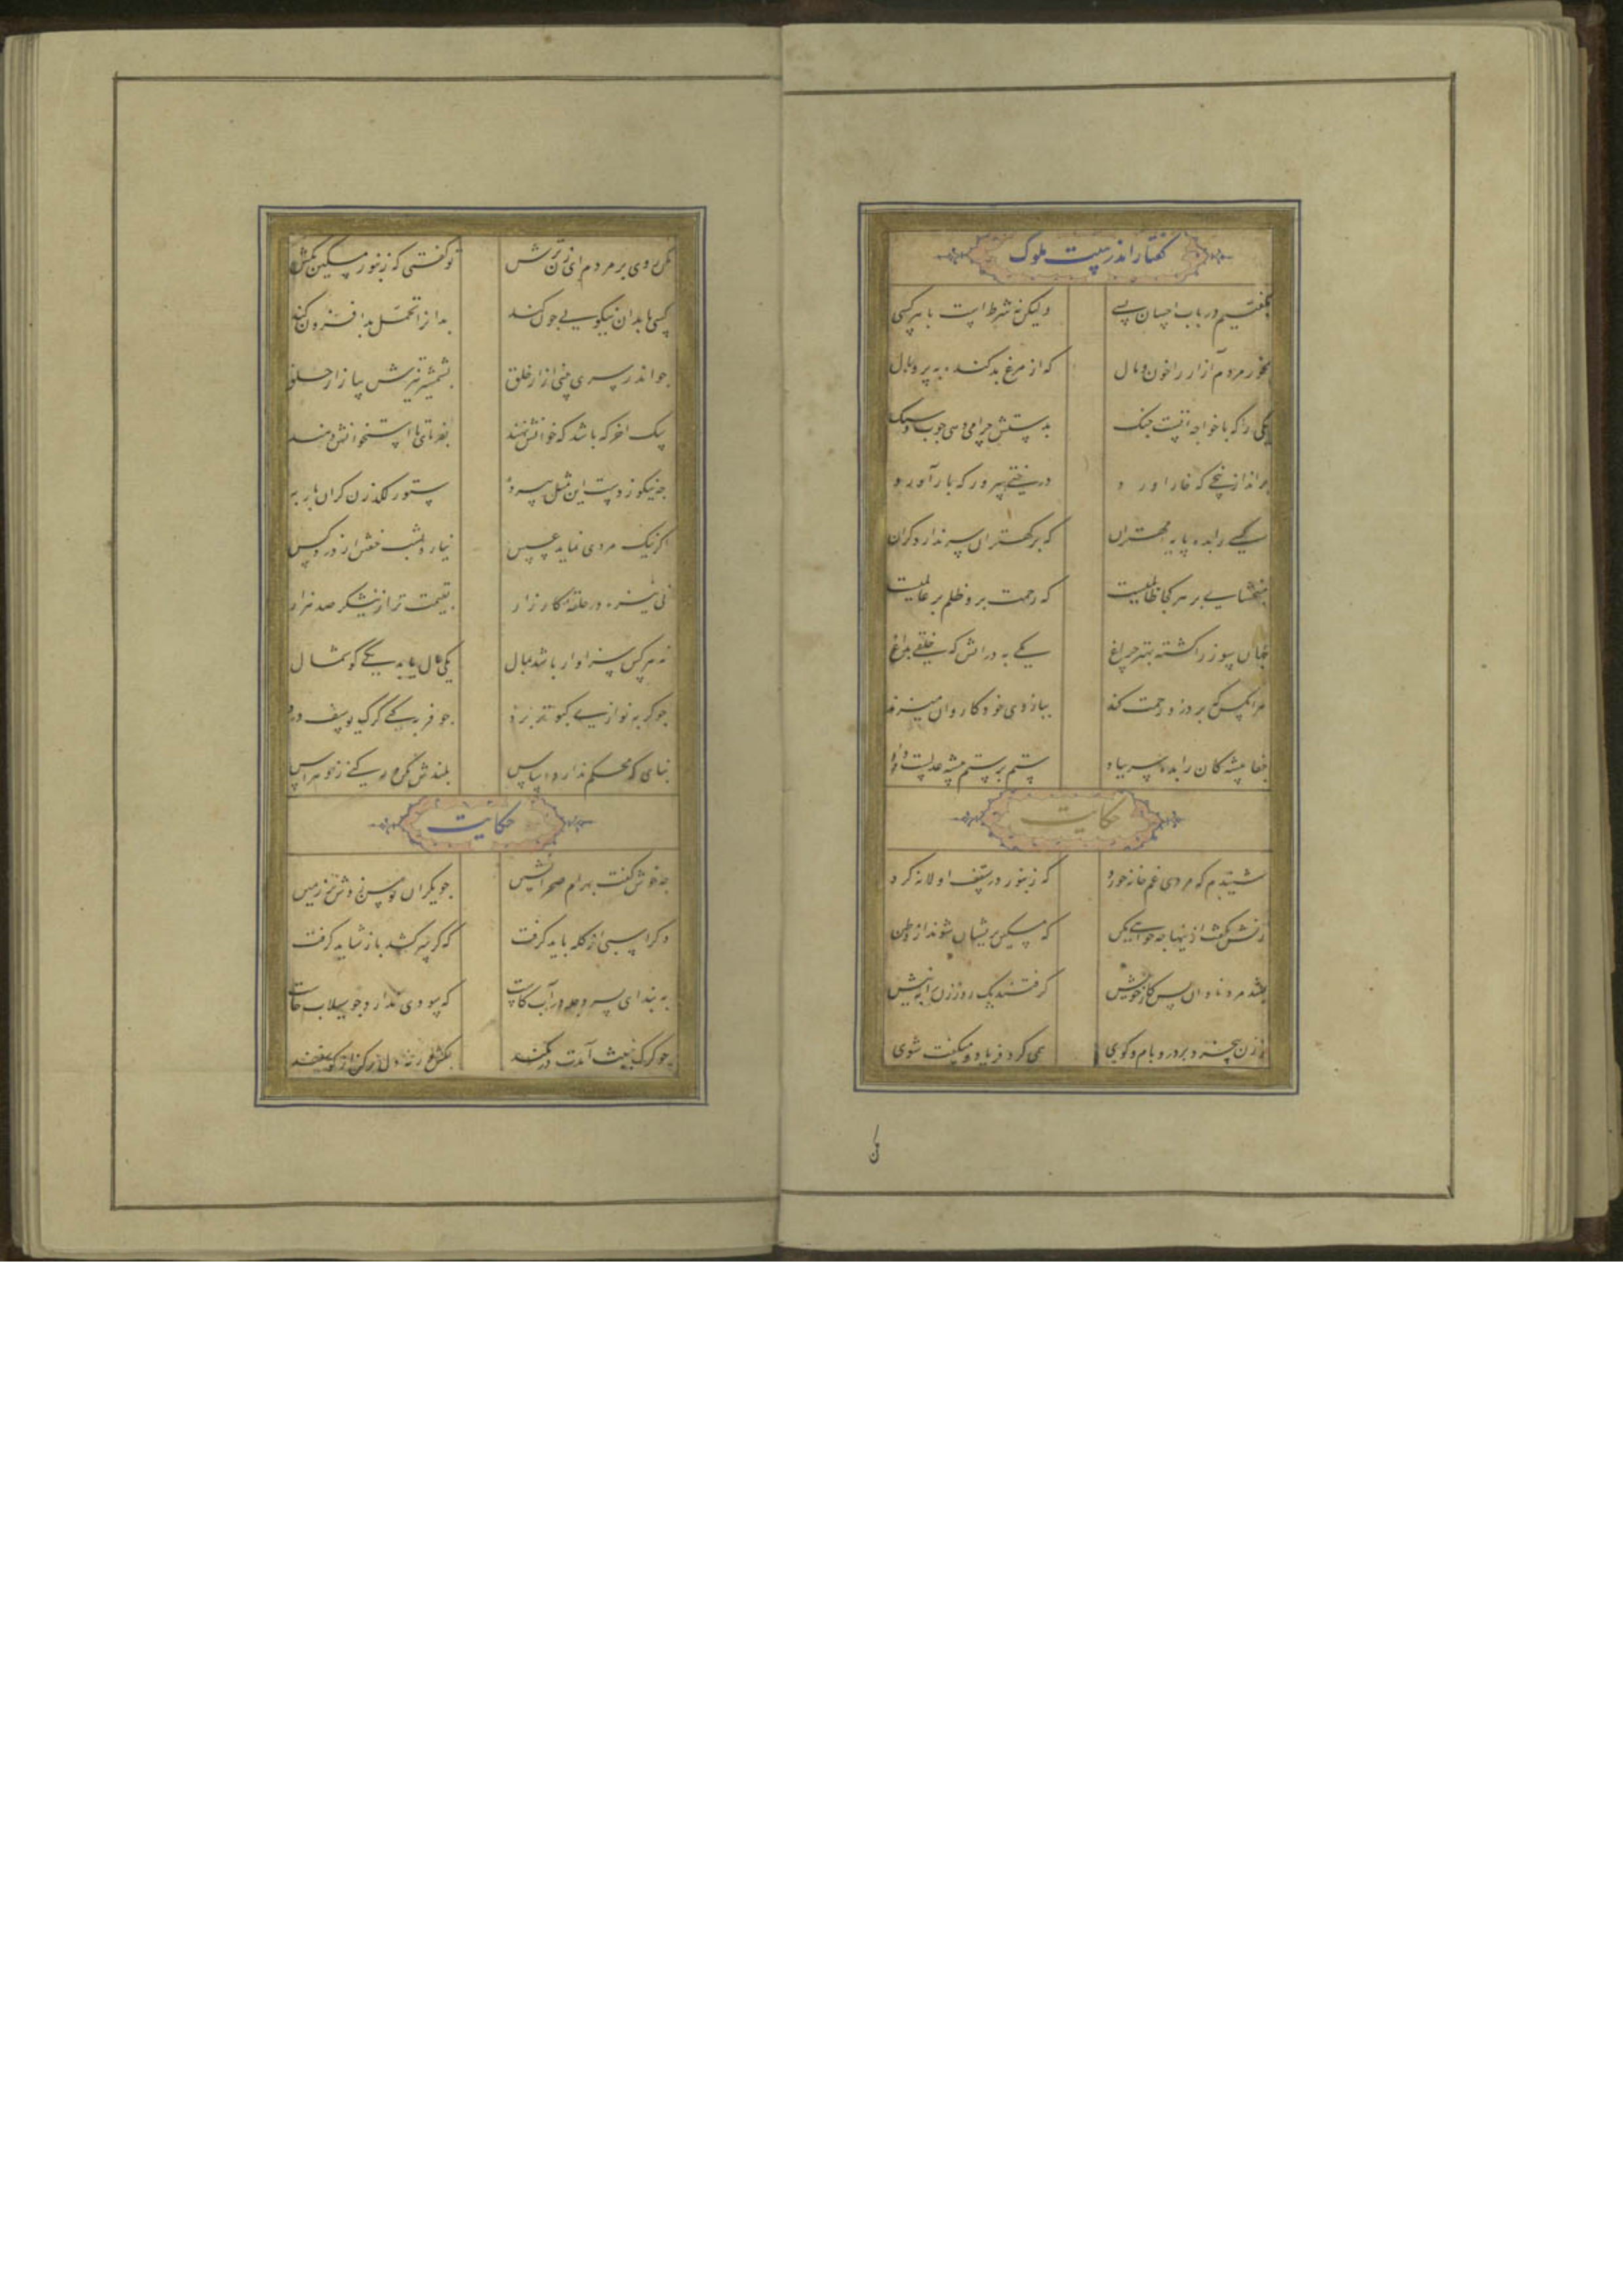 گفتار اندر سیاست ملوک
بگفتیم در باب احسان بسی ولیکن نه شرط است با هر کسی
بخور مردم آزار را خون و مال که از مرغ بد کنده به پر و بال
یکی را که با خواجه تست جنک بدستش چرا می دهی چوب و سنک
برانداز بیخی که خار آورد درختی بپرور که بار آورد
کسی را بده پایه مهتران که بر کهتران سر ندارد کران
مبخشای بر هر کجا ظالمیست که رحمت برو ظلم بر عالمیست
جهان سوز را کشته بهتر چراغ یکی به در آتش که خلقی بداغ
هر آنکس که بر دزد رحمت کند ببازوی خود کاروان میزند
جفا پیشه کان را بده سر بباد ستم بر ستم پیشه عدلست و داد
حکایت
شنیدم که مردی غم خانه خورد که زنبور در سقف او لانه کرد
زنش گفت ازینها چه خواهی مکن که مسکین پریشان شوند از وطن
بشد مرد نادان پس کار خویش گرفتند یک روز زن را به نیش
زن بیخرد بر در و بام و کوی همی کرد فریاد و میگفت شوی
مکن روی بر مردم ای زن ترش تو گفتی که زنبور مسکین مکش
کسی با بدان نیکویی چون کند بدانرا تحمل بد افزون کند
چو اندر سری بینی آزار خلق بشمشیر تیزش بیازار حلق
سک آخر که باشد که خوانش نهند بفرمای تا استخوانش دهند
چه نیکو زدست این مثل پیر ده ستور لکدزن کران بار به
اگر نیک مردی نماید عسس نیارد بشب خفتن از دزد کس
نی نیزه در حلقه کارزار بقیمت تر از نیشکر صد هزار
نه هر کس سزاوار باشد بمال یکی مال باید یکی گوشمال
چو گربه نوازی کبوتر برد چو فربه کنی گرگ یوسف درد
بنایی که محکم ندارد اساس بلندش مکن ور کنی زو هراس
حکایت
چه خوش گفت بهرام صحرانشین چو یکران توسن زدش بر زمین
دگر اسبی از گله باید گرفت که گر سر کشد باز شاید گرفت
به بند ای پسر دجله در آب کاست که سودی ندارد چو سیلاب خاست
چو گرگ خبیث آمدت در کمند بکش ور نه دل بر کن از گوسفند